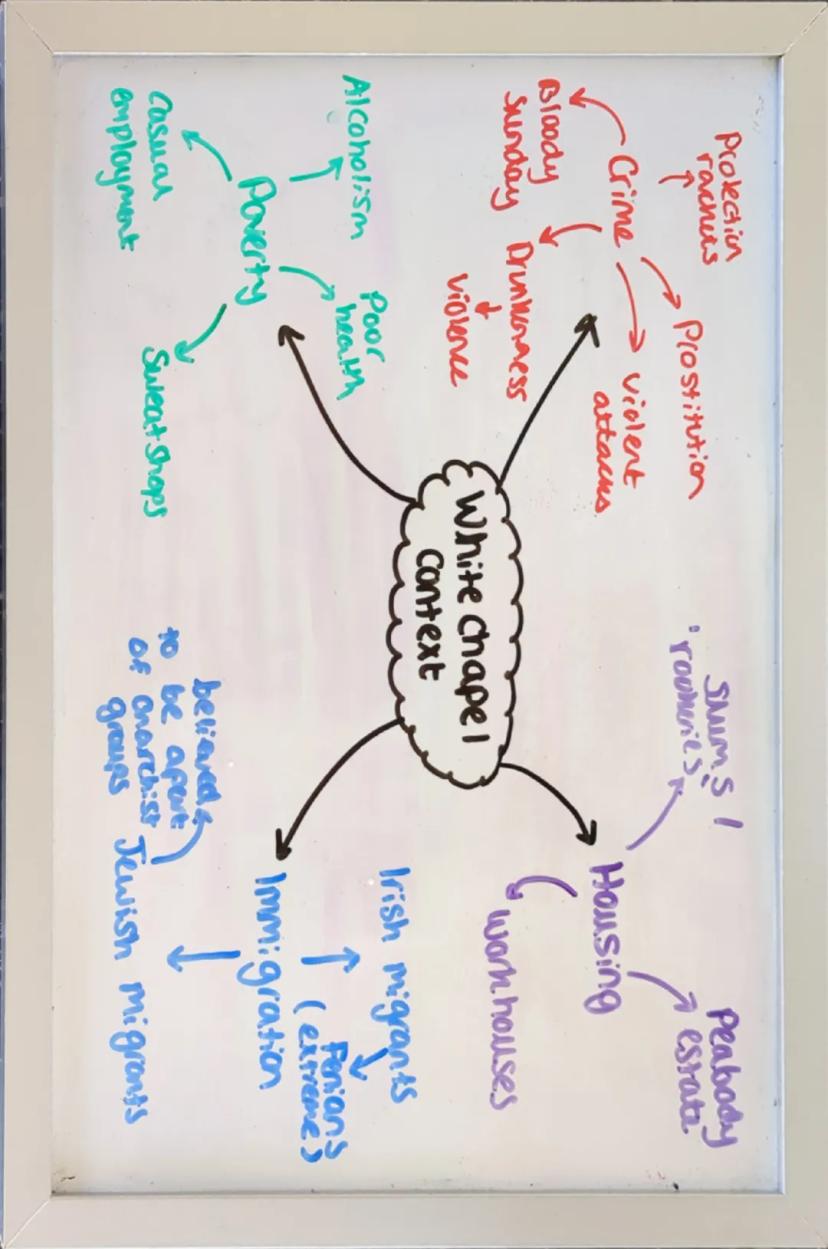 Protection
rackets
Prostitution
Crime
violent
attacks
Bloody
Sunday
Drunkenness
violence
Slums /
'rookeries'
Peabody
estate
Housing
workhouses
White chapel
context
Alcoholism
Poor
health
Poverty
Casual
employment
Sweatshops
Irish migrants
Fenians
(extreme)
Immigration
believed
to be apart
of anarchist
groups
Jewish migrants